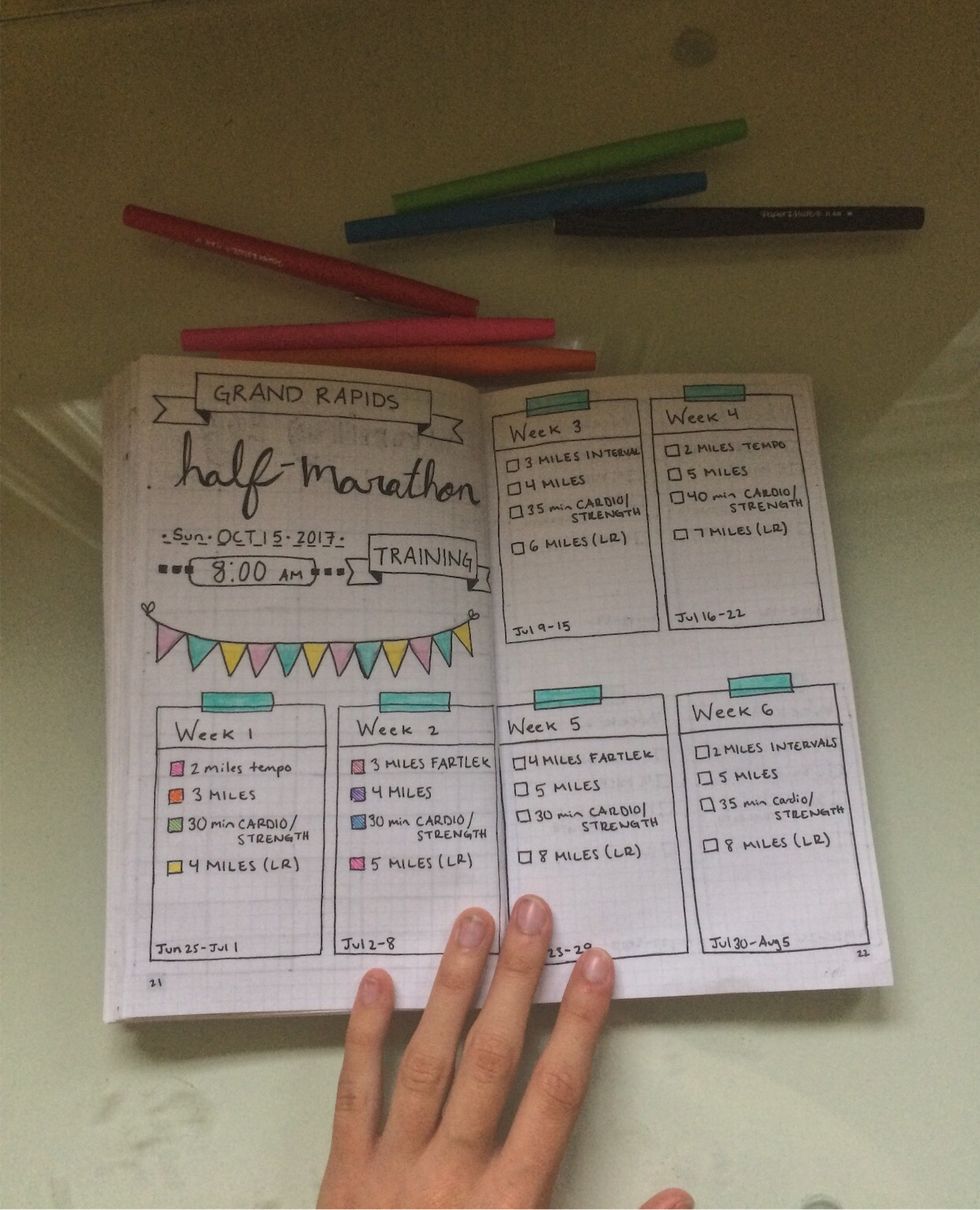 GRAND RAPIDS
half-marathon
Sun · OCT 15 · 2017
8:00 AM
TRAINING
Week 1
2 miles tempo
3 MILES
30 min CARDIO/
STRENGTH
4 MILES (LR)
Jun 25-Jul 1
Week 2
3 MILES FARTLEK
4 MILES
30 min CARDIO/
STRENGTH
5 MILES (LR)
Jul 2-8
21
Week 3
3 MILES INTERVAL
4 MILES
35 min CARDIO/
STRENGTH
6 MILES (LR)
Jul 9-15
Week 4
2 MILES TEMPO
5 MILES
40 min CARDIO/
STRENGTH
7 MILES (LR)
Jul 16-22
Week 5
4 MILES FARTLEK
5 MILES
30 min CARDIO/
STRENGTH
8 MILES (LR)
23-29
Week 6
2 MILES INTERVALS
5 MILES
35 min Cardio/
STRENGTH
8 MILES (LR)
Jul 30-Aug 5
22